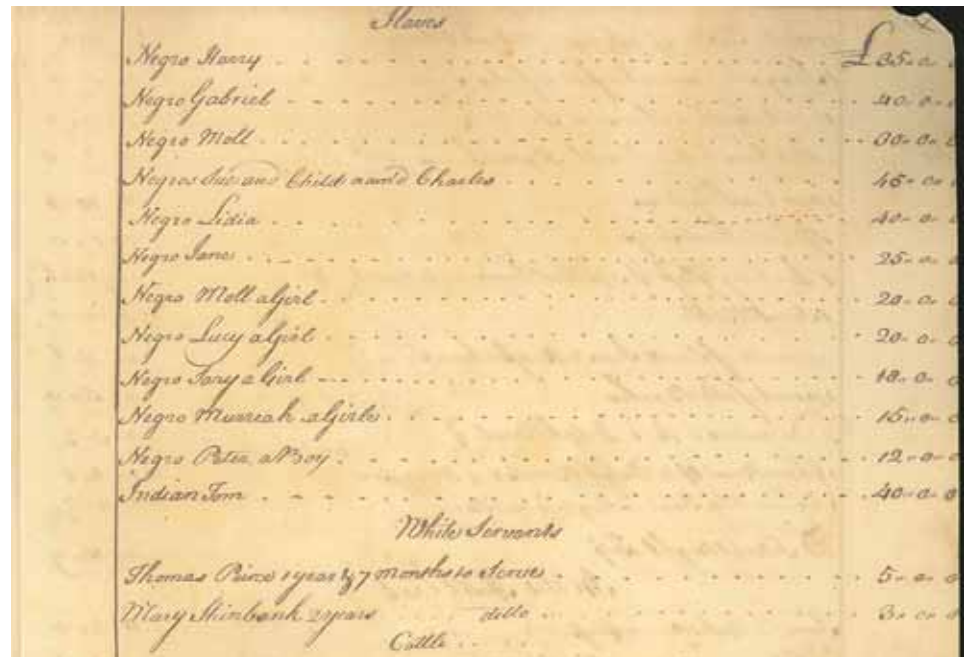 Slaves
Negro Harry £35-0-0
Negro Gabriel 40-0-0
Negro Moll 30-0-0
Negroes Sue and Child nam'd Charles 45-0-0
Negro Lidia 40-0-0
Negro Jane 25-0-0
Negro Moll a Girl 20-0-0
Negro Lucy a Girl 20-0-0
Negro a Girl 18-0-0
Negro Murreah a Girl 15-0-0
Negro Peter a Boy 12-0-0
Indian Tom 40-0-0
White Servants
Thomas 1 year & 7 months to Serve 5-0-0
Mary 2 years ditto 3-0-0
Cattle